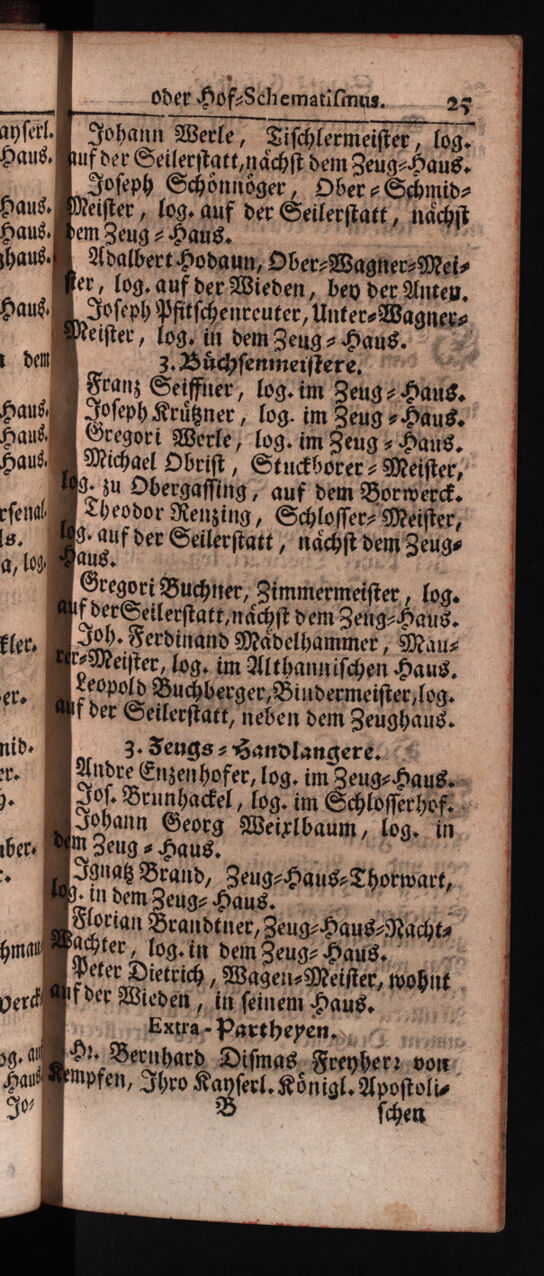 oder Hof-Schematismus. 25
Johann Werle, Tischlermeister, log.
auf der Seilerstatt, nächst dem Zeug-Haus.
Joseph Schönnöger, Ober-Schmid-
Meister, log. auf der Seilerstatt, nächst
dem Zeug-Haus.
Adalbert Hodaun, Ober-Wagner-Mei-
ster, log. auf der Wieden, bey der Anten.
Joseph Pfitschenreuter, Unter-Wagner-
Meister, log. in dem Zeug-Haus.
3. Büchsenmeistere.
Franz Seiffner, log. im Zeug-Haus.
Joseph Krützner, log. im Zeug-Haus.
Gregori Werle, log. im Zeug-Haus.
Michael Obrist, Stuckborer-Meister,
log. zu Obergassing, auf dem Vorwerck.
Theodor Renzing, Schlosser-Meister,
log. auf der Seilerstatt, nächst dem Zeug-
Haus.
Gregori Buchner, Zimmermeister, log.
auf der Seilerstatt, nächst dem Zeug-Haus.
Joh. Ferdinand Mädelhammer, Mau-
rer-Meister, log. im Althannischen Haus.
Leopold Buchberger, Bindermeister, log.
auf der Seilerstatt, neben dem Zeughaus.
3. Zeugs-Handlangere.
Andre Enzenhofer, log. im Zeug-Haus.
Jos. Brunhackel, log. im Schlosserhof.
Johann Georg Weixlbaum, log. in
dem Zeug-Haus.
Ignatz Brand, Zeug-Haus-Thorwart,
log. in dem Zeug-Haus.
Florian Brandtner, Zeug-Haus-Nacht-
Wachter, log. in dem Zeug-Haus.
Peter Dietrich, Wagen-Meister, wohnt
auf der Wieden, in seinem Haus.
Extra-Partheyen.
Hr. Bernhard Dismas Freyherr von
Kempfen, Ihro Kayserl. Königl. Apostoli-
B schen